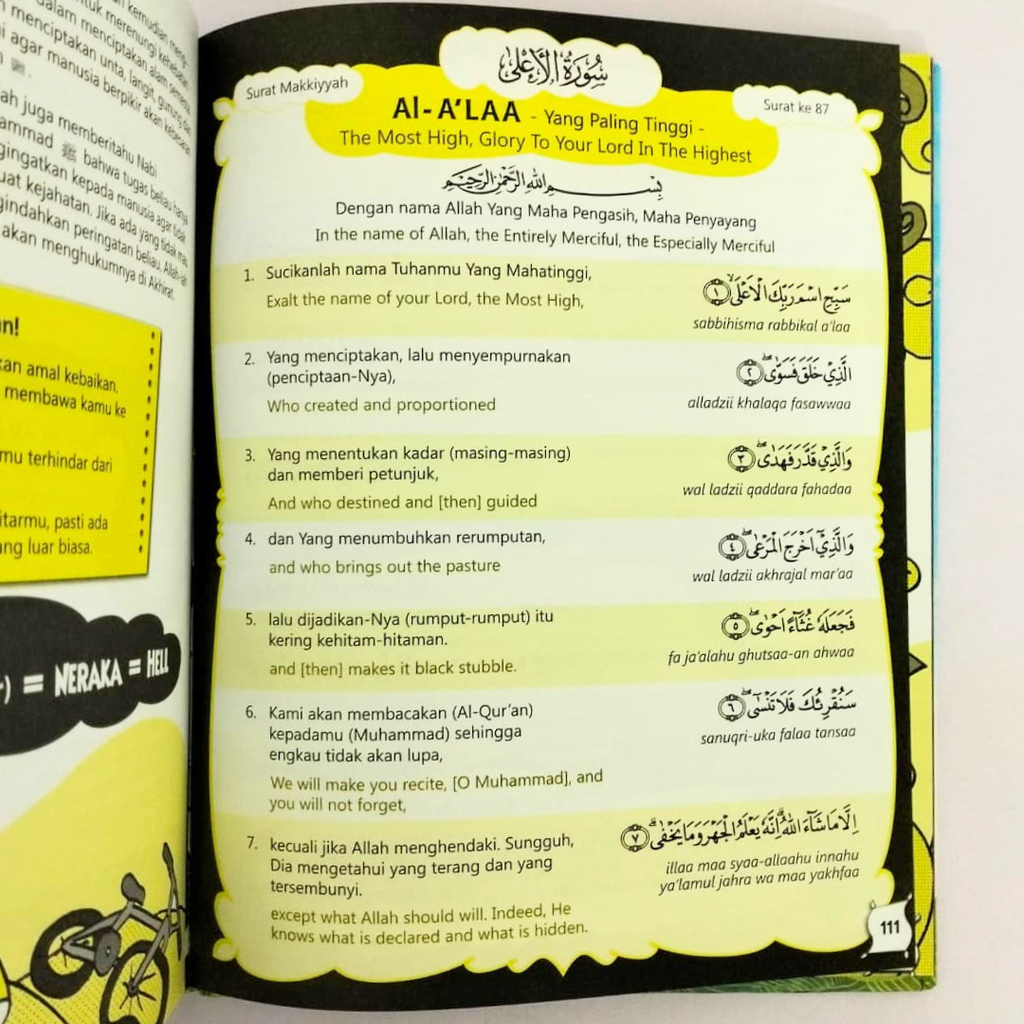 kemudian meng-
untuk merenungi kebesaran
dalam menciptakan alam semesta.
menciptakan unta, langit, gunung dan
agar manusia berpikir akan kebesaran
ﷺ.
ah juga memberitahu Nabi
ammad ﷺ bahwa tugas beliau hanya
gingatkan kepada manusia agar tidak
uat kejahatan. Jika ada yang tidak mau
gindahkan peringatan beliau. Allah-lah
akan menghukumnya di Akhirat.
an!
kan amal kebaikan.
membawa kamu ke
mu terhindar dari
itarmu, pasti ada
ang luar biasa.
) = NERAKA = HELL
سُورَةُ الْأَعْلَى
Surat Makkiyyah
Surat ke 87
Al-A'LAA - Yang Paling Tinggi -
The Most High, Glory To Your Lord In The Highest
بِسْمِ اللهِ الرَّحْمٰنِ الرَّحِيْمِ
Dengan nama Allah Yang Maha Pengasih, Maha Penyayang
In the name of Allah, the Entirely Merciful, the Especially Merciful
1. Sucikanlah nama Tuhanmu Yang Mahatinggi,
Exalt the name of your Lord, the Most High,
سَبِّحِ اسْمَ رَبِّكَ الْاَعْلَىۙ ١
sabbihisma rabbikal a'laa
2. Yang menciptakan, lalu menyempurnakan
(penciptaan-Nya),
Who created and proportioned
الَّذِيْ خَلَقَ فَسَوّٰىۖ ٢
alladzii khalaqa fasawwaa
3. Yang menentukan kadar (masing-masing)
dan memberi petunjuk,
And who destined and [then] guided
وَالَّذِيْ قَدَّرَ فَهَدٰىۖ ٣
wal ladzii qaddara fahadaa
4. dan Yang menumbuhkan rerumputan,
and who brings out the pasture
وَالَّذِيْٓ اَخْرَجَ الْمَرْعٰىۖ ٤
wal ladzii akhrajal mar'aa
5. lalu dijadikan-Nya (rumput-rumput) itu
kering kehitam-hitaman.
and [then] makes it black stubble.
فَجَعَلَهٗ غُثَاۤءً اَحْوٰىۖ ٥
fa ja'alahu ghutsaa-an ahwaa
6. Kami akan membacakan (Al-Qur'an)
kepadamu (Muhammad) sehingga
engkau tidak akan lupa,
We will make you recite, [O Muhammad], and
you will not forget,
سَنُقْرِئُكَ فَلَا تَنْسٰىٓۖ ٦
sanuqri-uka falaa tansaa
7. kecuali jika Allah menghendaki. Sungguh,
Dia mengetahui yang terang dan yang
tersembunyi.
except what Allah should will. Indeed, He
knows what is declared and what is hidden.
اِلَّا مَا شَاۤءَ اللّٰهُ ۗاِنَّهٗ يَعْلَمُ الْجَهْرَ وَمَا يَخْفٰىۗ ٧
illaa maa syaa-allaahu innahu
ya'lamul jahra wa maa yakhfaa
111